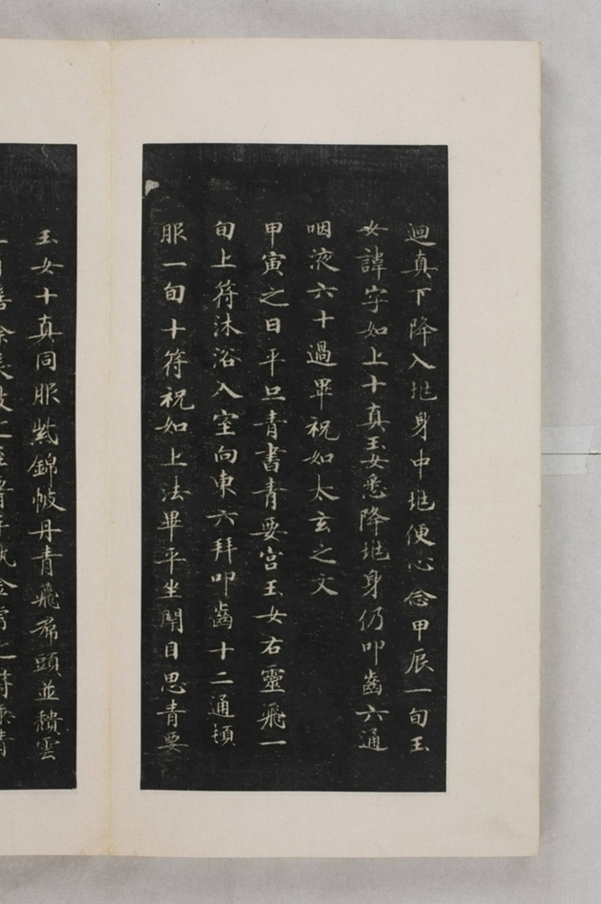 迴真下降入兆身中兆便心念甲辰一旬玉
女諱字如上十真玉女悉降兆身仍叩齒六通
咽液六十過畢祝如太玄之文
甲寅之日平旦青書青要宮玉女右靈飛一
旬上符沐浴入室向東六拜叩齒十二通頓
服一旬十符祝如上法畢平坐閉目思青要
玉女十真同服紫錦帔丹青飛帬頭並頹雲